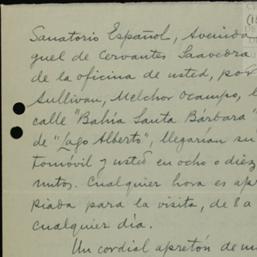 Sanatorio Español, Avenida
guel de Cervantes Saavedra
de la oficina de usted, por
Sullivan, Melchor Ocampo,
calle "Bahía Santa Bárbara"
de "Lago Alberto", llegarían su
tomóvil y usted en ocho o diez
nutos. Cualquier hora es apro
piada para la visita, de 8 a
cualquier día.
Un cordial apretón de ma